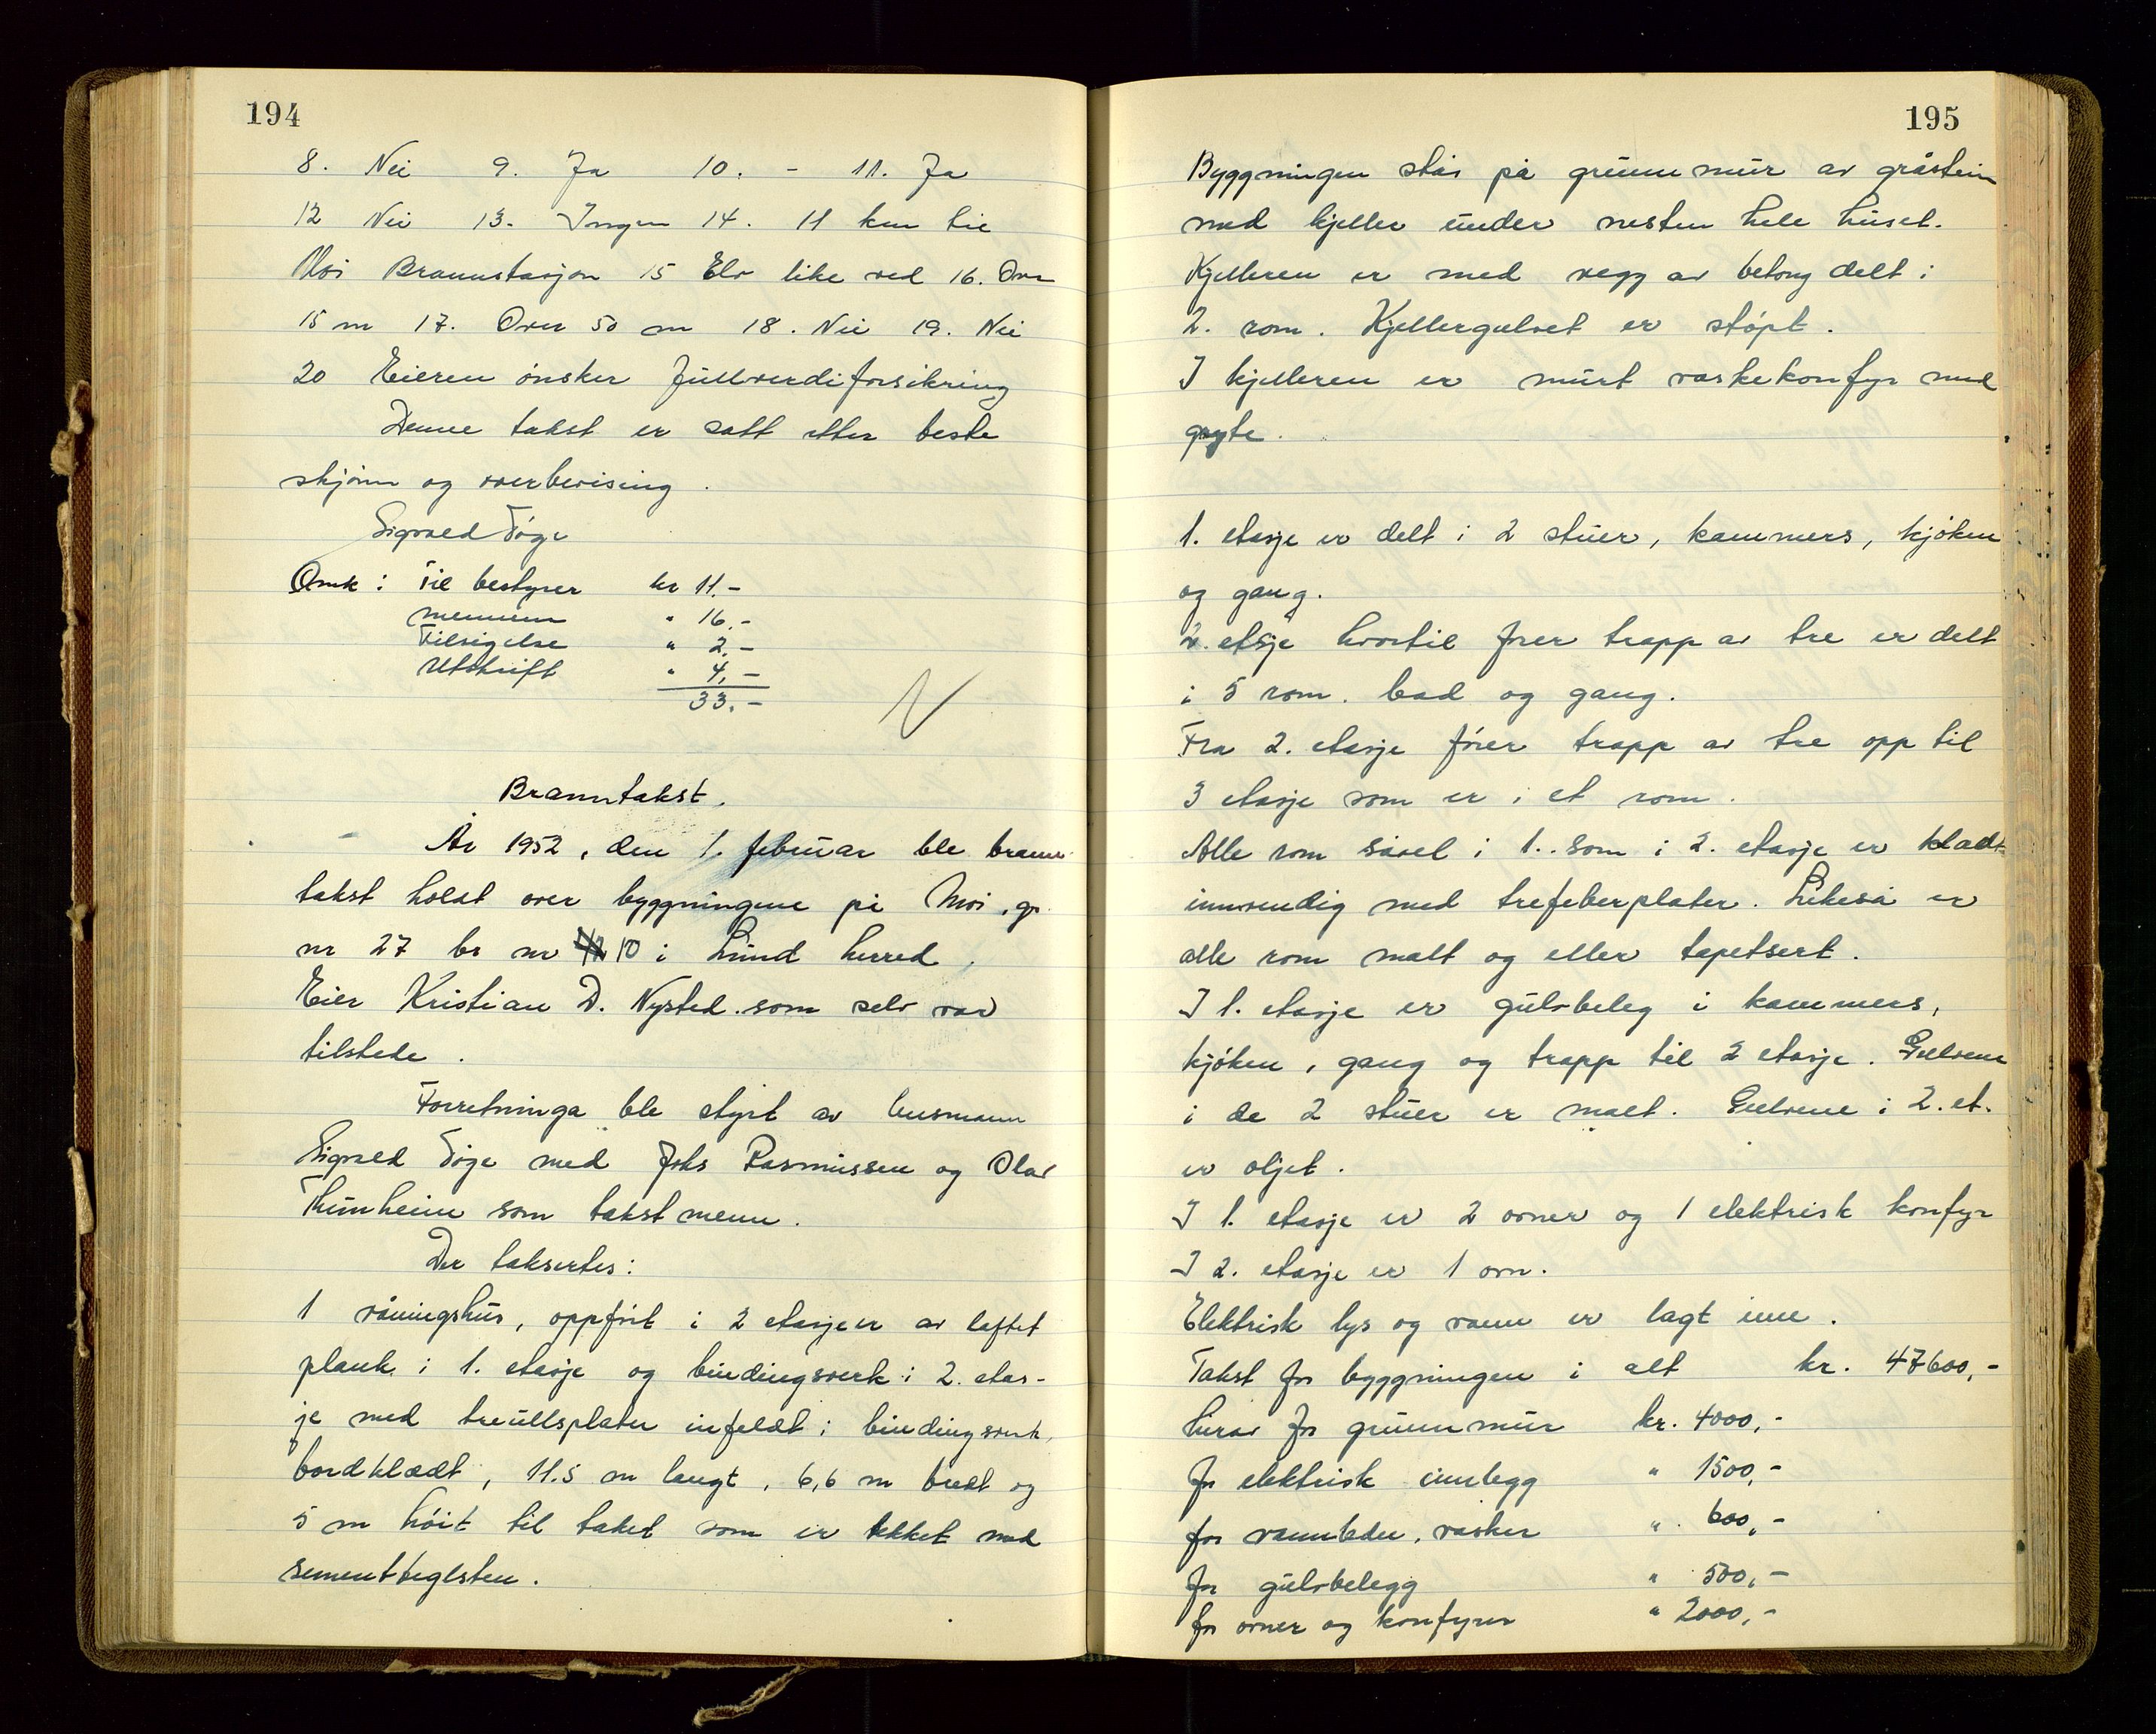 194
8. Nei 9. Ja 10. - 11. Ja
12 Nei 13. Ingen 14. 11 km til
Moi Brannstasjon 15 Elv like ved 16. Over
15 m 17. Over 50 m 18. Nei 19. Nei
20 Eieren ønsker fullverdiforsikring
Denne takst er satt etter beste
skjønn og overbevising.
Sigvald Tøge
Omk: Til bestyrer kr 11.-
mennene " 16.-
Tilsigelse " 2.-
Utskrift " 4,-
33.-
Branntakst.
År 1952, den 1. februar ble brann-
takst holdt over byggningene på Moi, gr.
nr 27 br nr 10 i Lund herred.
Eier Kristian D. Nysted som selv var
tilstede.
Forretninga ble styrt av lensmann
Sigvald Tøge med Johs Rasmussen og Olav
Thunheim som takstmenn.
Der taksertes:
1 våningshus, oppført i 2 etasjer av laftet
plank i 1. etasje og bindingsverk i 2. etas-
je med treullsplater infeldt i bindingsverk,
bordklædt, 11.5 m langt, 6,6 m bredt og
5 m høit til taket som er tekket med
sementteglsten.
195
Byggningen står på grunnmur av gråstein
med kjeller under nesten hele huset.
Kjelleren er med vegg av betong delt i
2. rom. Kjellergulvet er støpt.
I kjelleren er murt vaskekomfyr med
gryte.
1. etasje er delt i 2 stuer, kammers, kjøken
og gang.
2. etasje hvortil fører trapp av tre er delt
i 5 rom. bad og gang.
Fra 2. etasje fører trapp av tre opp til
3 etasje som er i et rom.
Alle rom såvel i 1. som i 2. etasje er kladt
innvendig med trefeberplater. Likeså er
alle rom malt og eller tapetsert.
I 1. etasje er gulvbeleg i kammers,
kjøken, gang og trapp til 2 etasje. Gulvene
i de 2 stuer er malt. Gulvene i 2. et.
er oljet.
I 1. etasje er 2 ovner og 1 elektrisk komfyr
I 2. etasje er 1 ovn.
Elektrisk lys og vann er lagt inn.
Takst for byggningen i alt kr. 47600,-
herav for grunnmur kr. 4000,-
for elektrisk innlegg " 1500,-
for vannledn, vasker " 600,-
for gulvbelegg " 500,-
for ovner og komfyrer " 2000,-